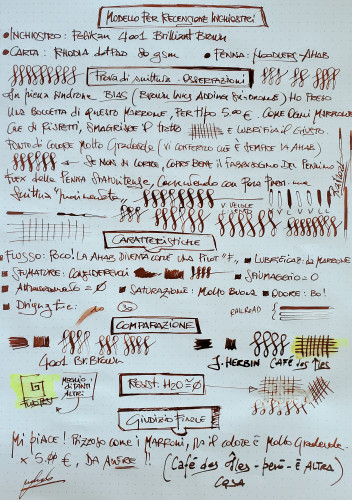 MODELLO PER RECENSIONE INCHIOSTRI
• INCHIOSTRO: PELIKAN 4001 Brilliant Brown
• CARTA: RHODIA DOTPAD 80 gsm • PENNA: NOODLERS-AHAB
Prova di scrittura - OSSERVAZIONI
In piena sindrome BIAS (BROWN INKS ADDING SINDROME) HO PRESO
UNA BOCCETTA DI QUESTO MARRONE, PER TIPO 5.00 €. COME OGNI MARRONE
CHE SI RISPETTI, SMAGRISCE IL TRATTO E LUBRIFICA IL GIUSTO.
PUNTO DI COLORE MOLTO GRADEVOLE (VI CONFERMO CHE È SEMPRE LA AHAB)
SE NON SI CORRE, COPRE BENE IL FABBISOGNO DEL PENNINO
FLEX DELLA PENNA STATUNITENSE,
Scrittura
VELOCE
LENTO
RAILROAD
CARATTERISTICHE
• FLUSSO: POCO! LA AHAB DIVENTA COME UNA PILOT "F"
LUBRIFICAZ: DA MARRONE
SFUMATURE: CONSIDEREVOLI
SPIUMAGGIO = 0
ATTRAVERSAMENTO = Ø
SATURAZIONE: MOLTO BUONA
ODORE: BO!
RAILROAD
COMPARAZIONE
4001 Br. Brown
J. HERBIN CAFÉ des Îles
MEGLIO
DI TANTI
ALTRI
RESIST. H2O ≅ Ø
GIUDIZIO FINALE
Mi piace! Rizzoso come i MARRONI, MA il colore è MOLTO Gradevole.
x 5,00 €, DA AVERE!!
(Café des Îles - però - È ALTRA
COSA)